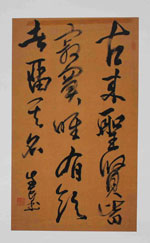 古来聖賢皆
寂寞唯有飲
者留其名